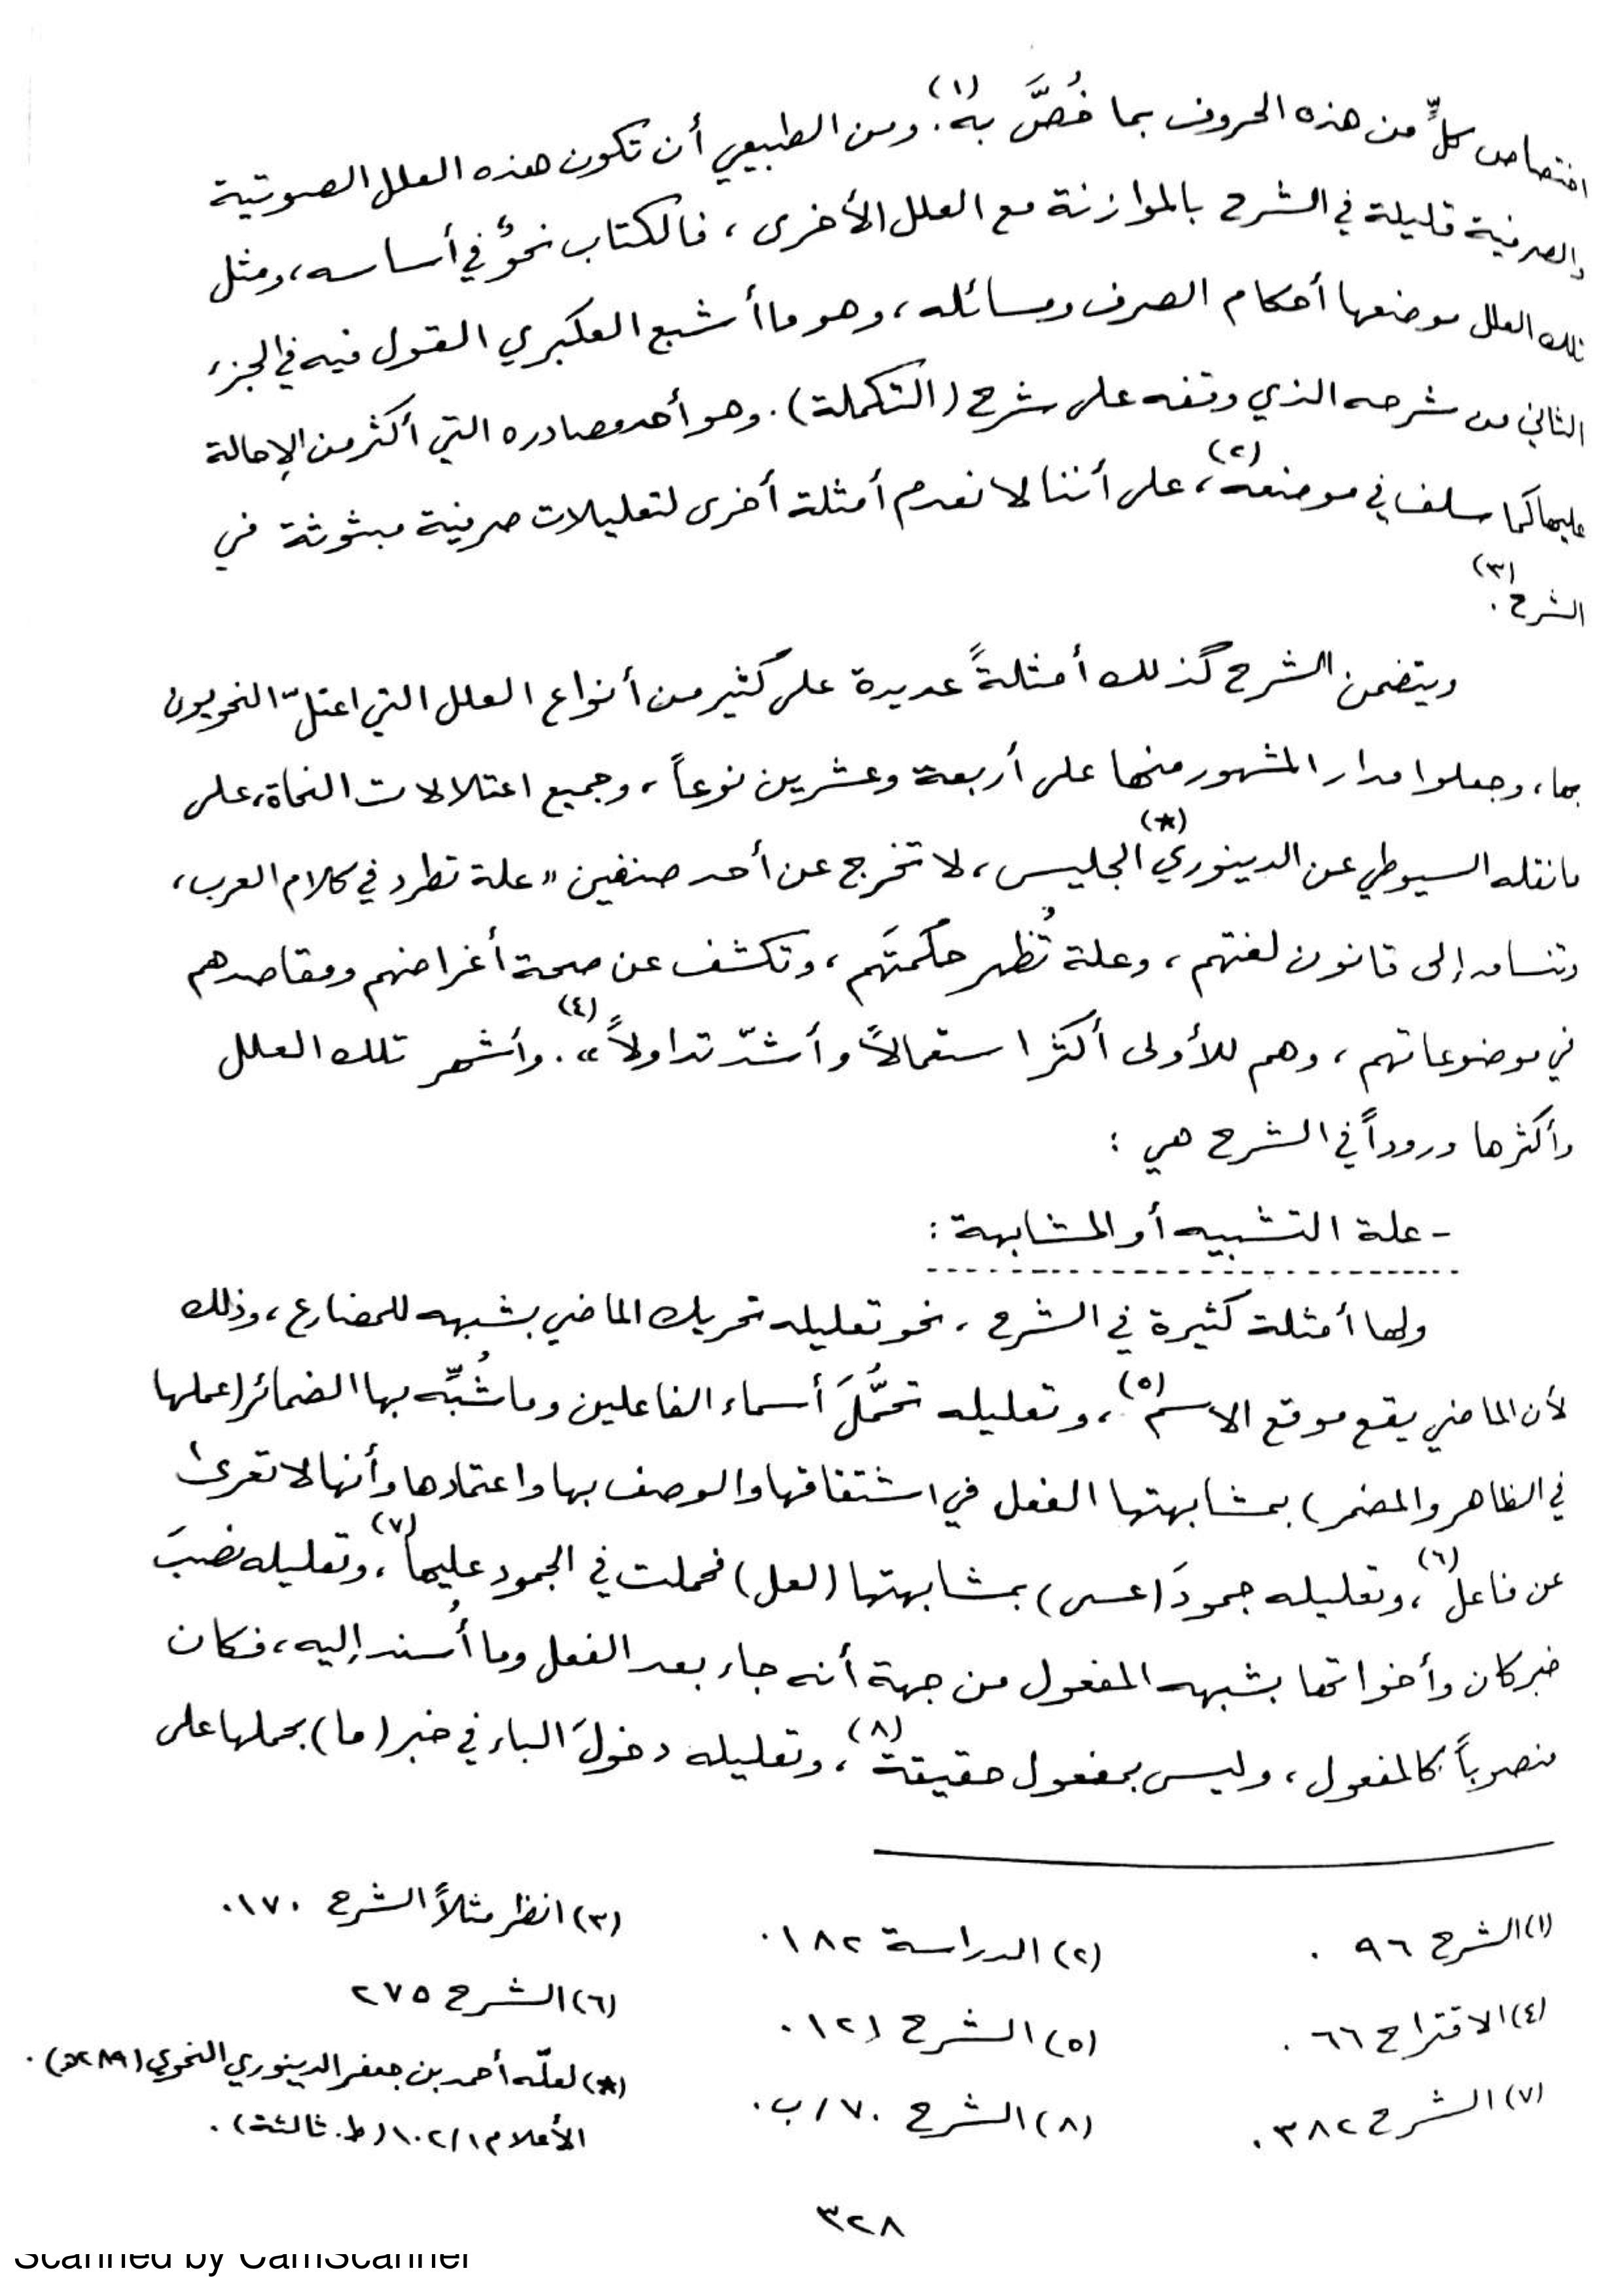 اختصاص كلٍّ من هذه الحروف بما خُصَّ به(١). ومن الطبيعي أن تكون هذه العلل الصوتية
والصرفية قليلة في الشرح بالموازنة مع العلل الأخرى، فالكتاب نحوٌ في أساسه، ومثل
تلك العلل موضعها أحكام الصرف ومسائله، وهو ما أشبع العكبري القول فيه في الجزء
الثاني من شرحه الذي وقفه على شرح (التكملة). وهو أحد مصادره التي أكثر من الإحالة
عليها كما سلف في موضعه(٢)، على أننا لا نعدم أمثلة أخرى لتعليلات صرفية مبثوثة في
الشرح(٣).
ويتضمن الشرح كذلك أمثلةً عديدة على كثير من أنواع العلل التي اعتلّ النحويون
بها، وجعلوا مدار المشهور منها على أربعة وعشرين نوعاً، وجميع اعتلالات النحاة، على
ما نقله السيوطي عن الدينوري(*) الجليس، لا تخرج عن أحد صنفين «علة تطرد في كلام العرب،
وتنساق إلى قانون لغتهم، وعلة تُظهر حكمتَهم، وتكشف عن صحة أغراضهم ومقاصدهم
في موضوعاتهم، وهم للأولى أكثر استعمالاً وأشدّ تداولاً»(٤). وأشهر تلك العلل
وأكثرها وروداً في الشرح هي :
- علة التشبيه أو المشابهة :
ولها أمثلة كثيرة في الشرح، نحو تعليله تحريك الماضي بشبهه للمضارع، وذلك
لأن الماضي يقع موقع الاسم(٥)، وتعليله تحمُّلَ أسماء الفاعلين وما شُبِّه بها الضمائر (عملها
في الظاهر والمضمر) بمشابهتها الفعل في اشتقاقها والوصف بها واعتمادها وأنها لا تعرى
عن فاعل(٦)، وتعليله جمودَ (عسى) بمشابهتها (لعل) فحملت في الجمود عليها(٧)، وتعليله نصبَ
خبر كان وأخواتها بشبهه المفعول من جهة أنه جاء بعد الفعل وما أُسند إليه، فكان
منصوباً كالمفعول، وليس بمفعول حقيقة(٨)، وتعليله دخولَ الباء في خبر (ما) بحملها على
(١) الشرح ٩٦ .
(٢) الدراسة ١٨٢ .
(٣) انظر مثلاً الشرح ١٧٠ .
(٤) الاقتراح ٦٦ .
(٥) الشرح ١٢١ .
(٦) الشرح ٢٧٥
(٧) الشرح ٣٨٢ .
(٨) الشرح ٧٠/ب .
(*) لعلّه أحمد بن جعفر الدينوري النحوي (٢٨٩هـ) .
الأعلام ١٠٢/١ (ط. ثالثة) .
٣٢٨
Scanned by CamScanner